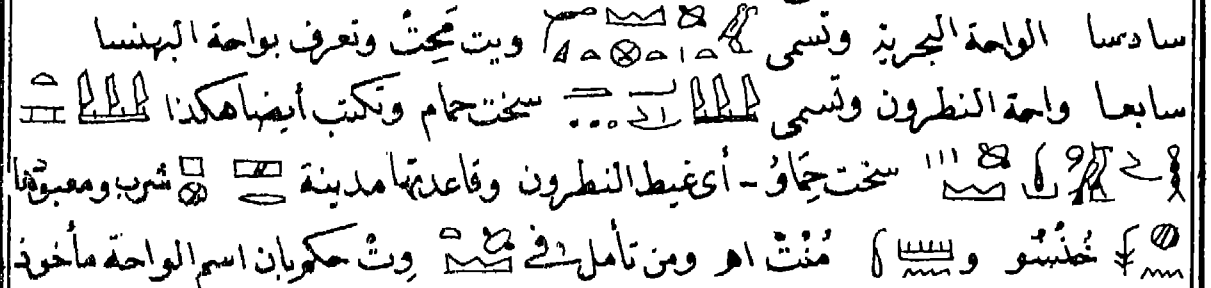 سادسا الواحة البحرية وتسمى ويت مَحِتْ وتعرف بواحة البهنسا
سابعا واحة النطرون وتسمى سخت حمام وتكتب أيضا هكذا
سخت حِمَاوُ - أى غيط النطرون وقاعدتها مدينة شرب ومعبودها
خُنْسُو و مُنْتْ اه ومن تأمل فى وِتْ حكم بان اسم الواحة مأخوذ